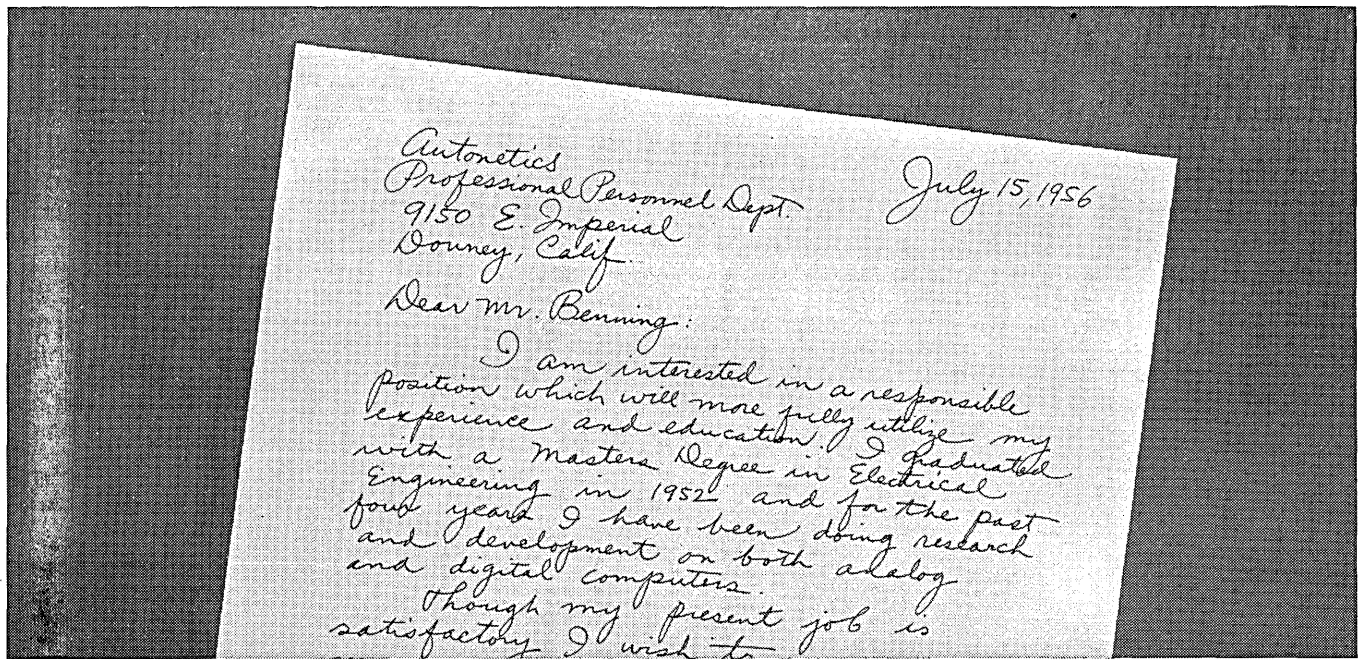 July 15, 1956
Autonetics
Professional Personnel Dept.
9150 E. Imperial
Downey, Calif.
Dear Mr. Benning:
I am interested in a responsible
position which will more fully utilize my
experience and education. I graduated
with a Masters Degree in Electrical
Engineering in 1952 and for the past
four years I have been doing research
and development on both analog
and digital computers.
Though my present job is
satisfactory I wish to